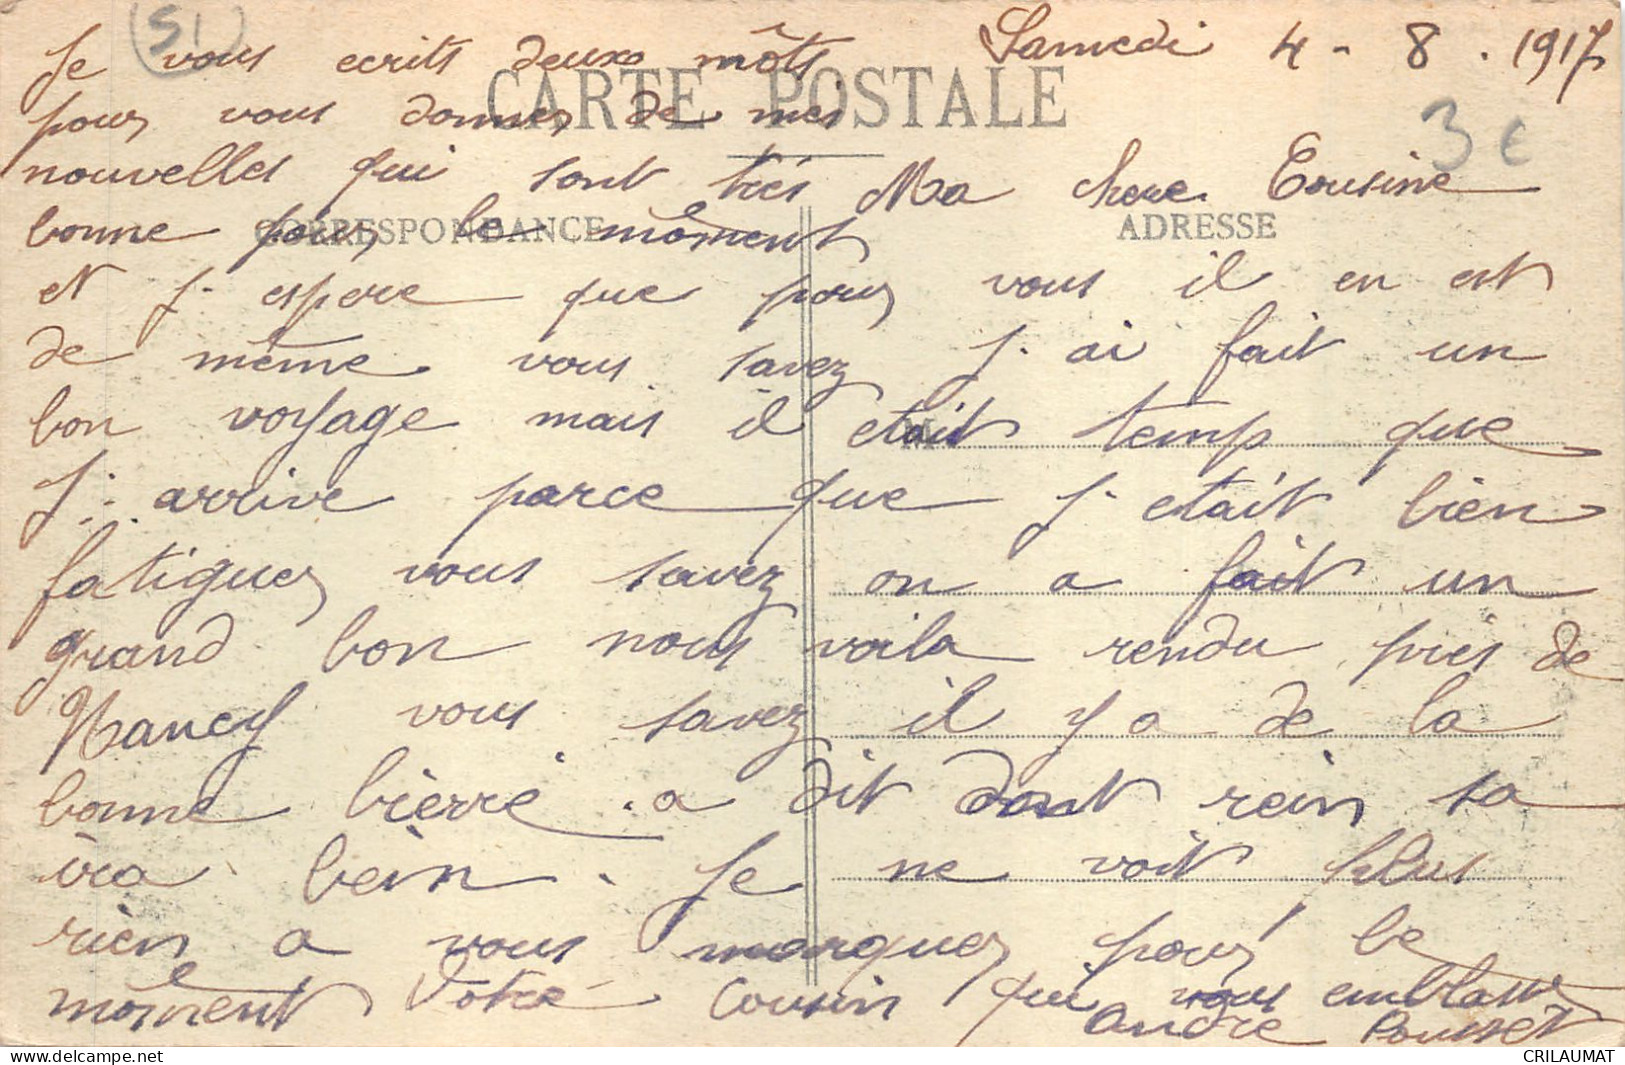 (51)
Samedi 4 - 8 . 1917
3 €
CARTE POSTALE
CORRESPONDANCE
ADRESSE
M
Ma chere Cousine
Je vous ecrits deuxe môts
pour vous donner de mes
nouvelles qui sont très
bonne pour le môment
et j. espere que pour vous il en est
de même vous savez j. ai fait un
bon voyage mais il etait temp que
j. arrive parce que j. etait bien
fatiguer vous savez on a fait un
grand bon nous voila rendu près de
Nancy vous savez il y a de la
bonne bierre . a dit dont rein sa
ira bein . Je ne voit plus
rien a vous marquer pour le
môment Votre cousin qui vous emblasse
André Pousset
CRILAUMAT